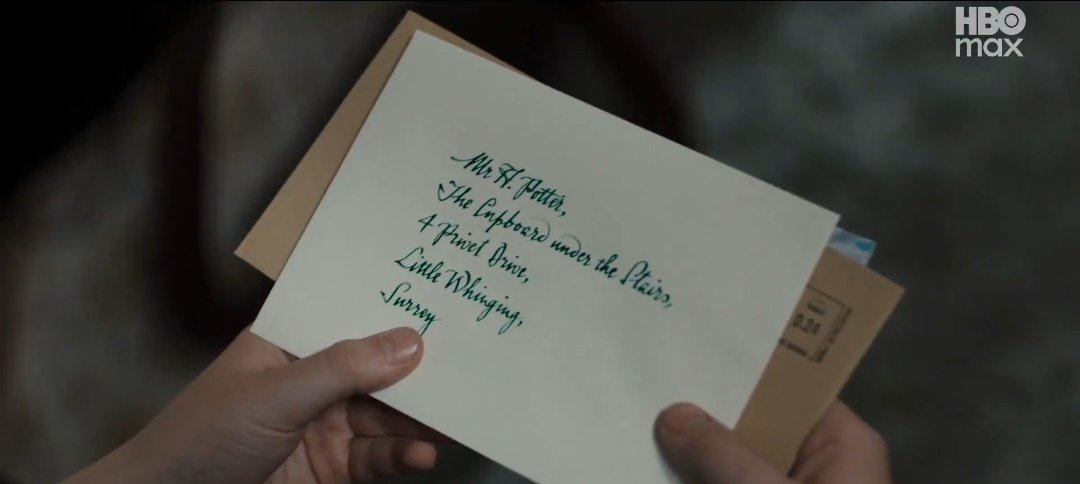 HBO
max
Mr H. Potter,
The Cupboard under the Stairs,
4 Privet Drive,
Little Whinging,
Surrey
0.24